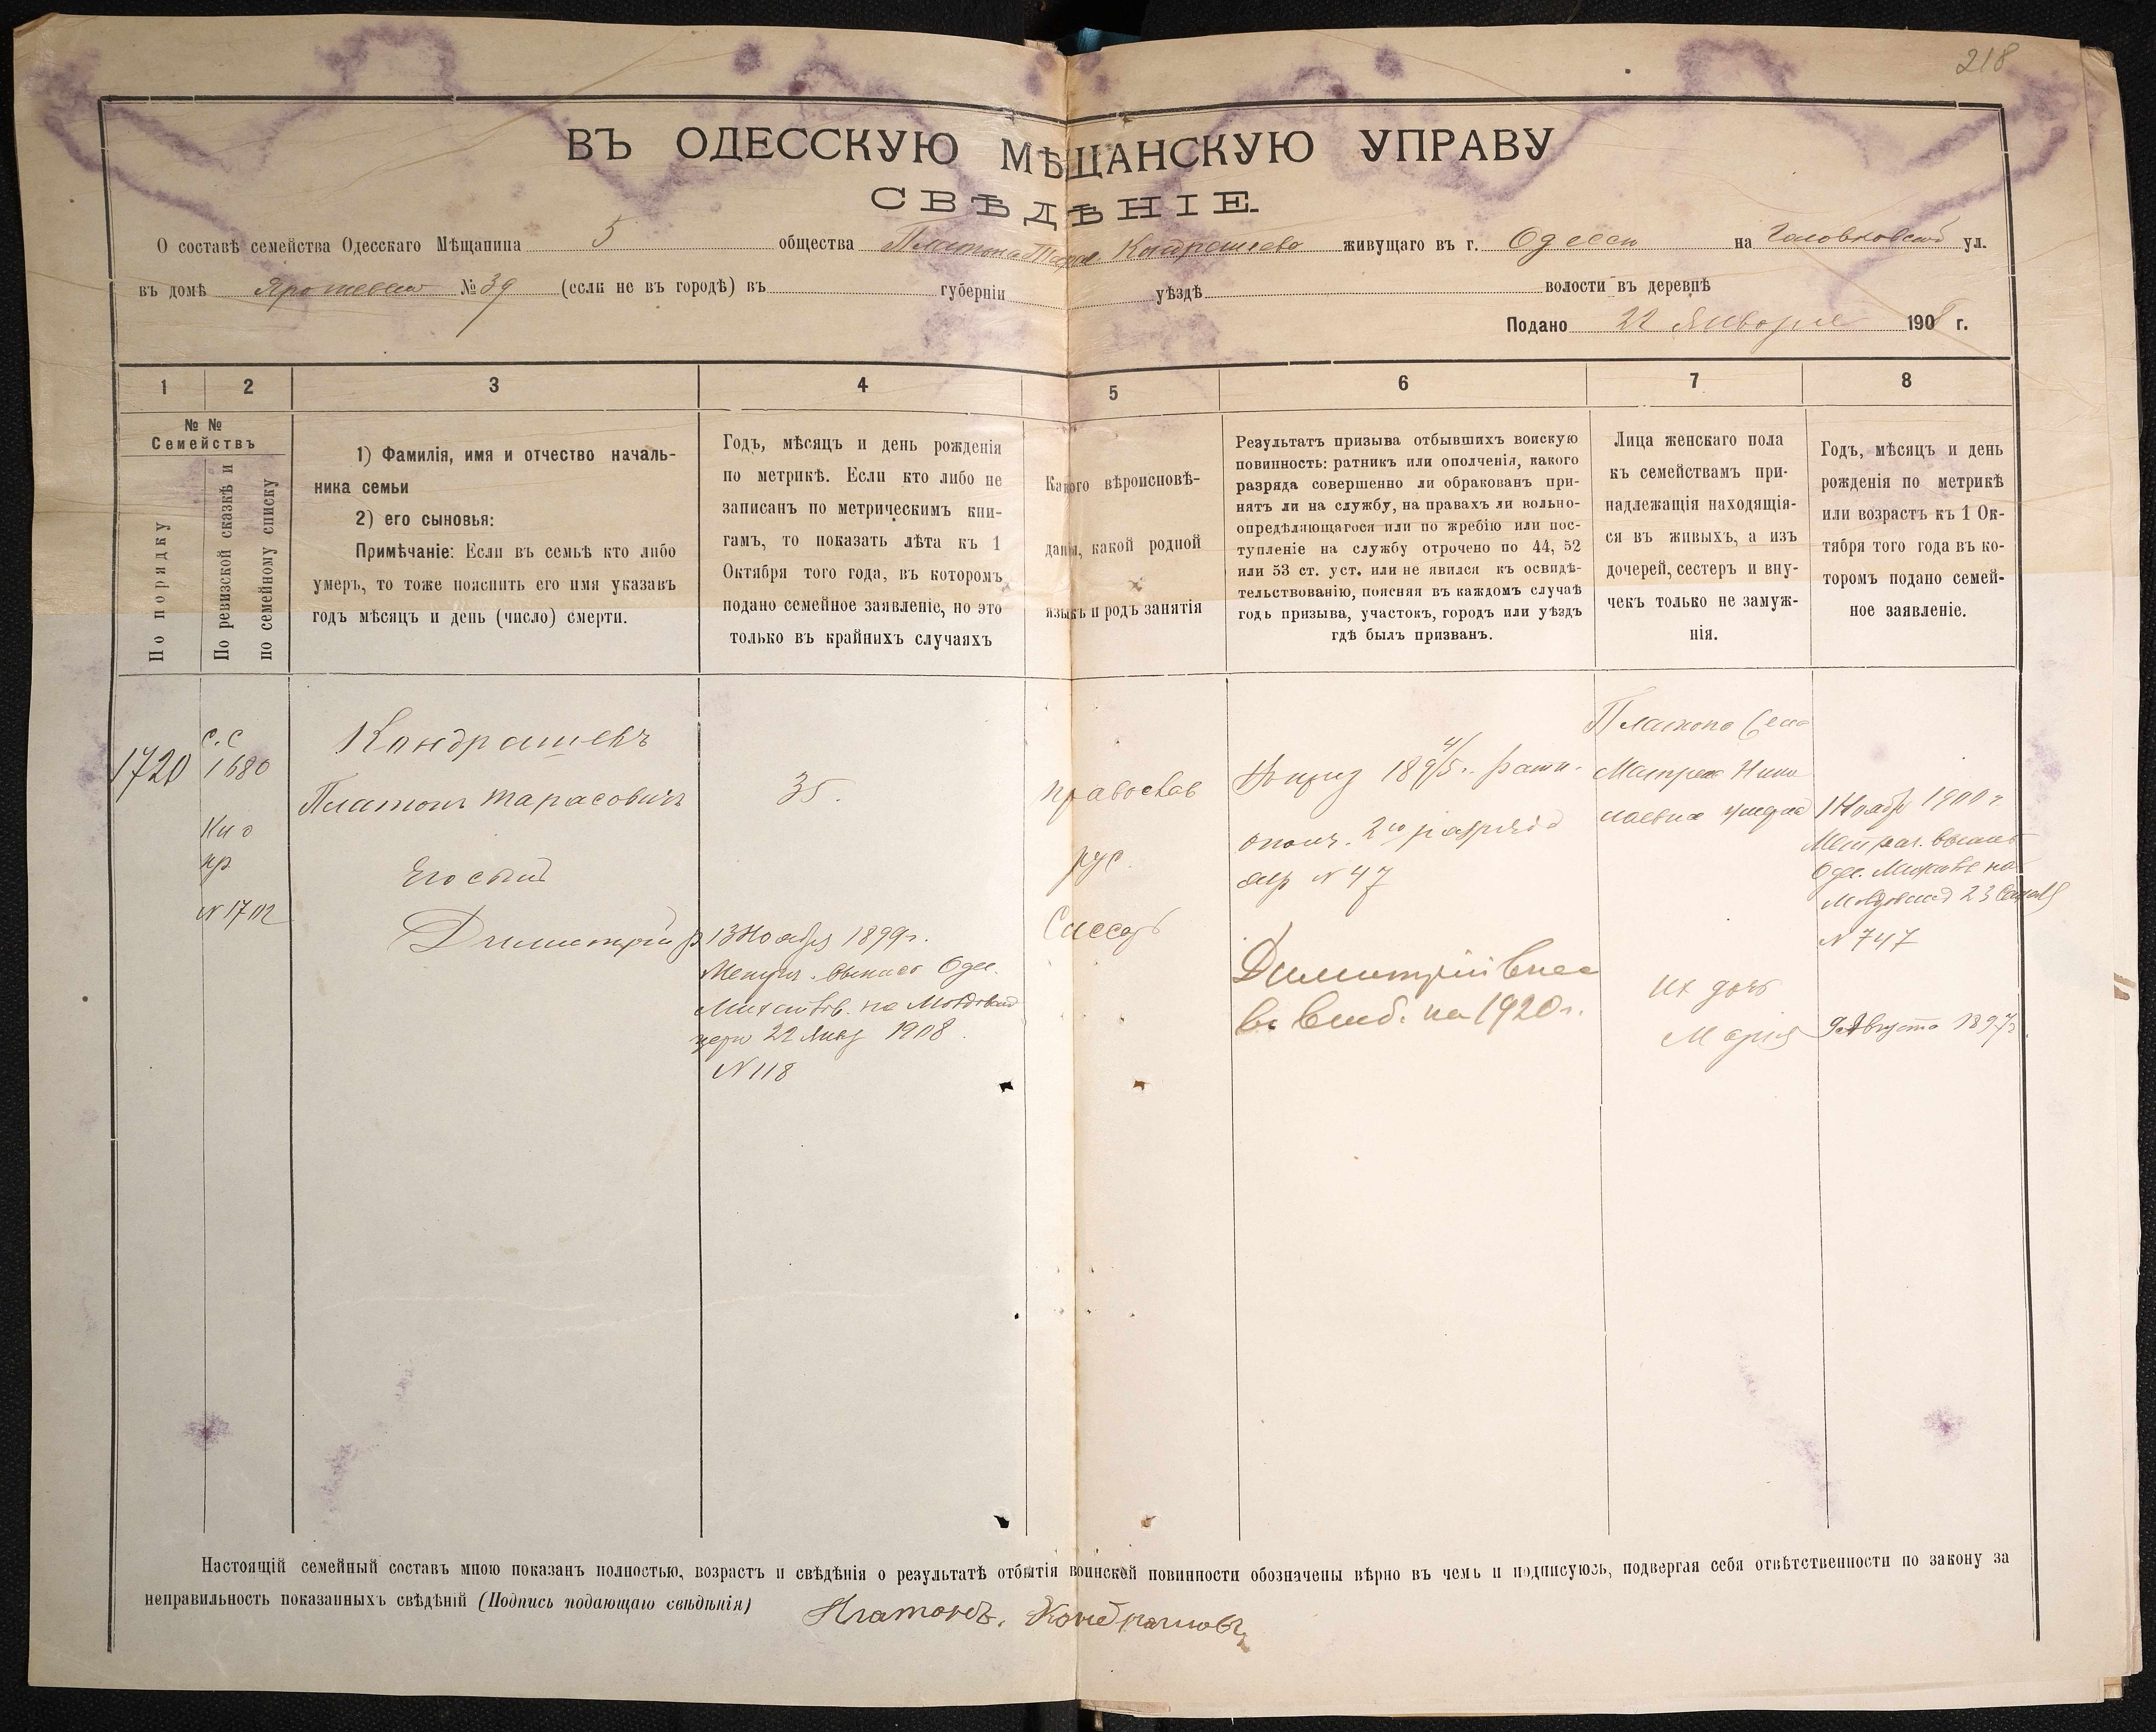 218
ВЪ ОДЕССКУЮ МѢЩАНСКУЮ УПРАВУ
СВѢДѢНІЕ.
О составѣ семейства Одесскаго Мѣщанина 5 общества Платона Тарас. Кондрашева живущаго въ г. Одессѣ на Головковской ул.
въ домѣ № 39 (если не въ городѣ) въ губерніи уѣздѣ волости въ деревнѣ
Подано 22 Января 1908 г.
1 2 3 4 5 6 7 8
№ №
Семействъ
По порядку
По ревизской сказкѣ и
по семейному списку
1) Фамилія, имя и отчество началь-
ника семьи
2) его сыновья:
Примѣчаніе: Если въ семьѣ кто либо
умеръ, то тоже пояснить его имя указавъ
годъ мѣсяцъ и день (число) смерти.
Годъ, мѣсяцъ и день рожденія
по метрикѣ. Если кто либо не
записанъ по метрическимъ кни-
гамъ, то показать лѣта къ 1
Октября того года, въ которомъ
подано семейное заявленіе, но это
только въ крайнихъ случаяхъ
Какого вѣроисповѣ-
данія, какой родной
языкъ и родъ занятія
Результатъ призыва отбывшихъ воискую
повинность: ратникъ или ополченія, какого
разряда совершенно ли обракованъ при-
нятъ ли на службу, на правахъ ли вольно-
опредѣляющагося или по жребію или пос-
тупленіе на службу отрочено по 44, 52
или 53 ст. уст. или не явился къ освидѣ-
тельствованію, поясняя въ каждомъ случаѣ
годъ призыва, участокъ, городъ или уѣздъ
гдѣ былъ призванъ.
Лица женскаго пола
къ семействамъ при-
надлежащія находящія-
ся въ живыхъ, а изъ
дочерей, сестеръ и вну-
чекъ только не замуж-
нія.
Годъ, мѣсяцъ и день
рожденія по метрикѣ
или возрастъ къ 1 Ок-
тября того года въ ко-
торомъ подано семей-
ное заявленіе.
1720
с.с
1680
пр
N 1702
Кондрашевъ
Платонъ Тарасовичъ
Его сынъ
Димитрій р
35.
13 Ноября 1899 г.
Метрич. выпись Одес.
на Молдован
церк 22 Янв 1908
N 118
православ
рус.
Слесарь
призыв 1894/5 г. ратн.
ополч. 2го разряда
N 47
Димитрій внес
въ на 1920 г.
Платона
Матрена Нико
лаевна умерла
их дочь
Марія
1 Ноябр 1900 г
Метрич. выпись
Одес. на
N 747
9 Августа 1897 г.
Настоящій семейный составъ мною показанъ полностью, возрастъ и свѣдѣнія о результатѣ отбытія воинской повинности обозначены вѣрно въ чемъ и подписуюсь, подвергая себя отвѣтственности по закону за
неправильность показанныхъ свѣдѣній (Подпись подающаго свѣдѣнія) Платонъ. Кондрашовъ